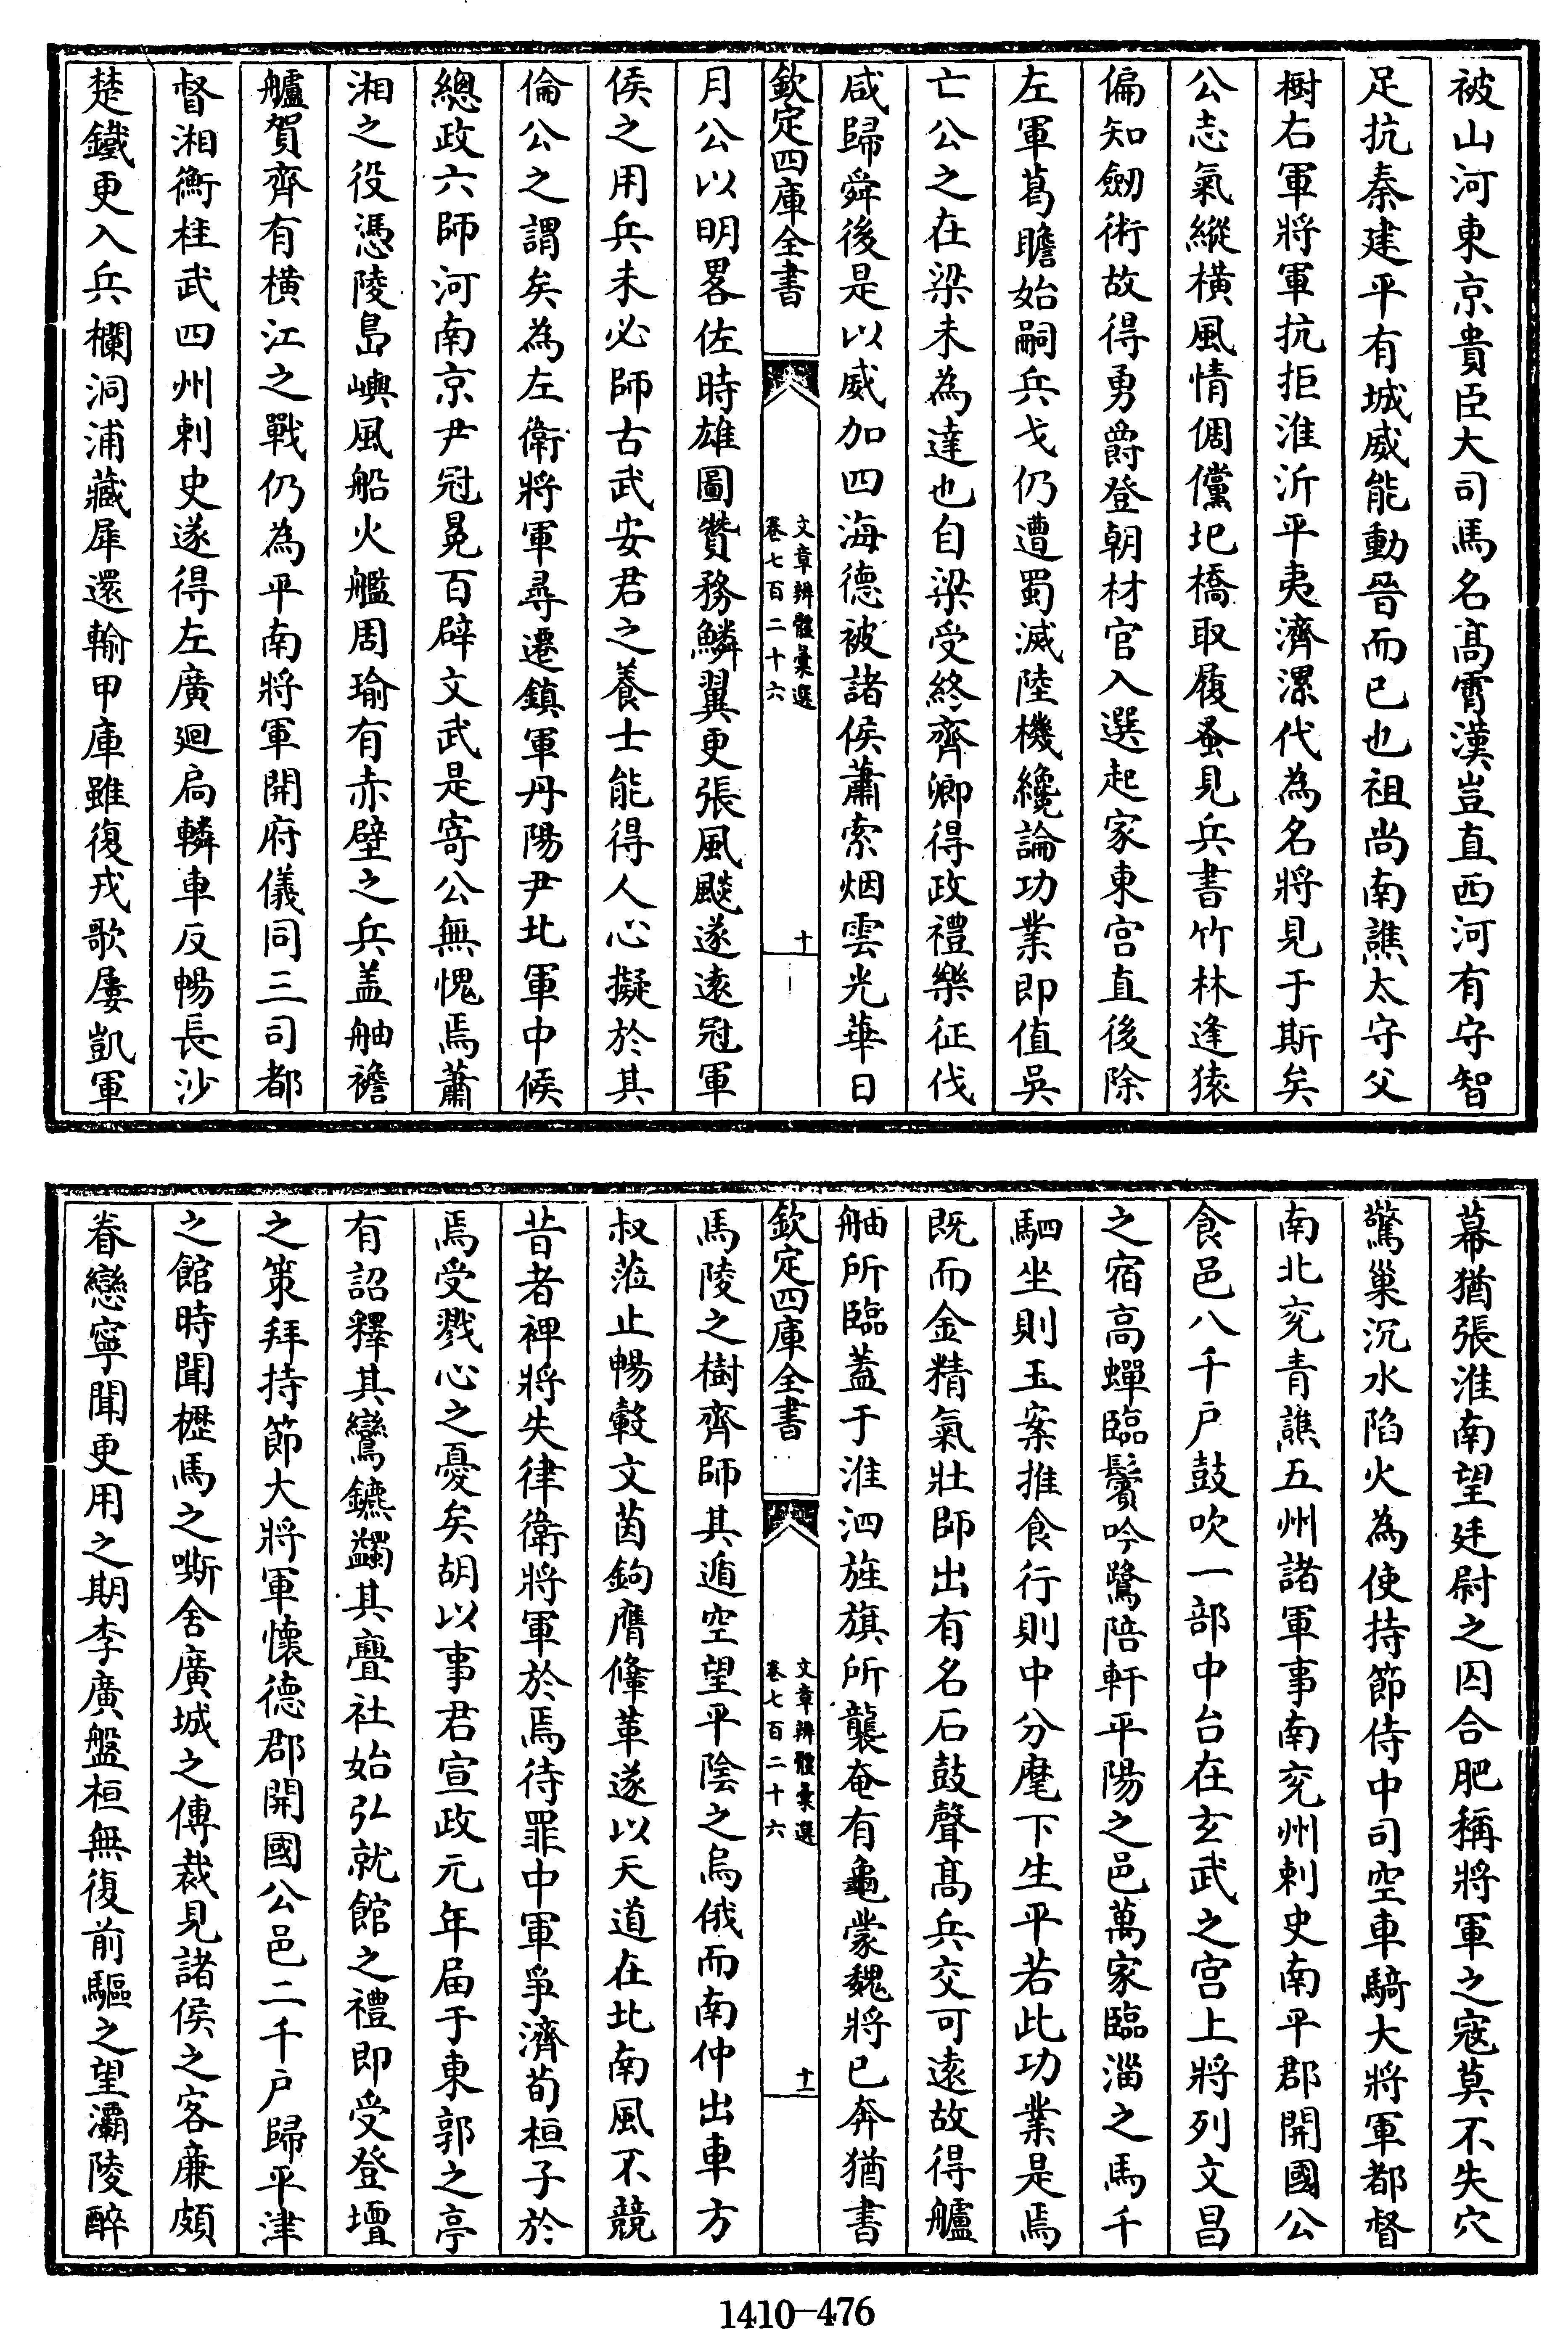 被山河東京貴臣大司馬名髙霄漢豈直西河有守智
足抗秦建平有城威能動晉而已也祖尚南譙太守父
樹右軍將軍抗拒淮沂平夷濟漯代為名將見于斯矣
公志氣縱橫風情倜儻圯橋取履蚤見兵書竹林逢猿
偏知劒術故得勇爵登朝材官入選起家東宫直後除
左軍葛瞻始嗣兵戈仍遭蜀滅陸機纔論功業即值吳
亡公之在梁未為達也自梁受終齊卿得政禮樂征伐
咸歸舜後是以威加四海德被諸侯蕭索烟雲光華日
欽定四庫全書
文章辨體彙選
卷七百二十六
十
月公以明畧佐時雄圖贊務鱗翼更張風飇遂遠冠軍
侯之用兵未必師古武安君之養士能得人心擬於其
倫公之謂矣為左衛將軍尋遷鎮軍丹陽尹北軍中候
總政六師河南京尹冠冕百辟文武是寄公無愧焉蕭
湘之役憑陵島嶼風船火艦周瑜有赤壁之兵盖舳襜
艫賀齊有橫江之戰仍為平南將軍開府儀同三司都
督湘衡柱武四州刺史遂得左廣廻扃轔車反暢長沙
楚鐵更入兵欄洞浦藏犀還輸甲庫雖復戎歌屢凱軍
幕猶張淮南望廷尉之囚合肥稱將軍之寇莫不失穴
驚巢沉水陷火為使持節侍中司空車騎大將軍都督
南北兗青譙五州諸軍事南兗州刺史南平郡開國公
食邑八千户鼓吹一部中台在玄武之宫上將列文昌
之宿高蟬臨鬢吟鷺陪軒平陽之邑萬家臨淄之馬千
駟坐則玉案推食行則中分麾下生平若此功業是焉
既而金精氣壯師出有名石鼓聲髙兵交可遠故得艫
舳所臨蓋于淮泗旌旗所襲奄有龜蒙魏將已奔猶書
欽定四庫全書
文章辨體彙選
卷七百二十六
十一
馬陵之樹齊師其遁空望平陰之烏俄而南仲出車方
叔蒞止暢轂文茵鉤膺鞗革遂以天道在北南風不競
昔者禆將失律衛將軍於焉待罪中軍爭濟荀桓子於
焉受戮心之憂矣胡以事君宣政元年届于東郭之亭
有詔釋其鸞鑣蠲其釁社始弘就館之禮即受登壇
之策拜持節大將軍懷德郡開國公邑二千户歸平津
之館時聞櫪馬之嘶舍廣城之傳裁見諸侯之客廉頗
眷戀寧聞更用之期李廣盤桓無復前驅之望灞陵醉
1410—476